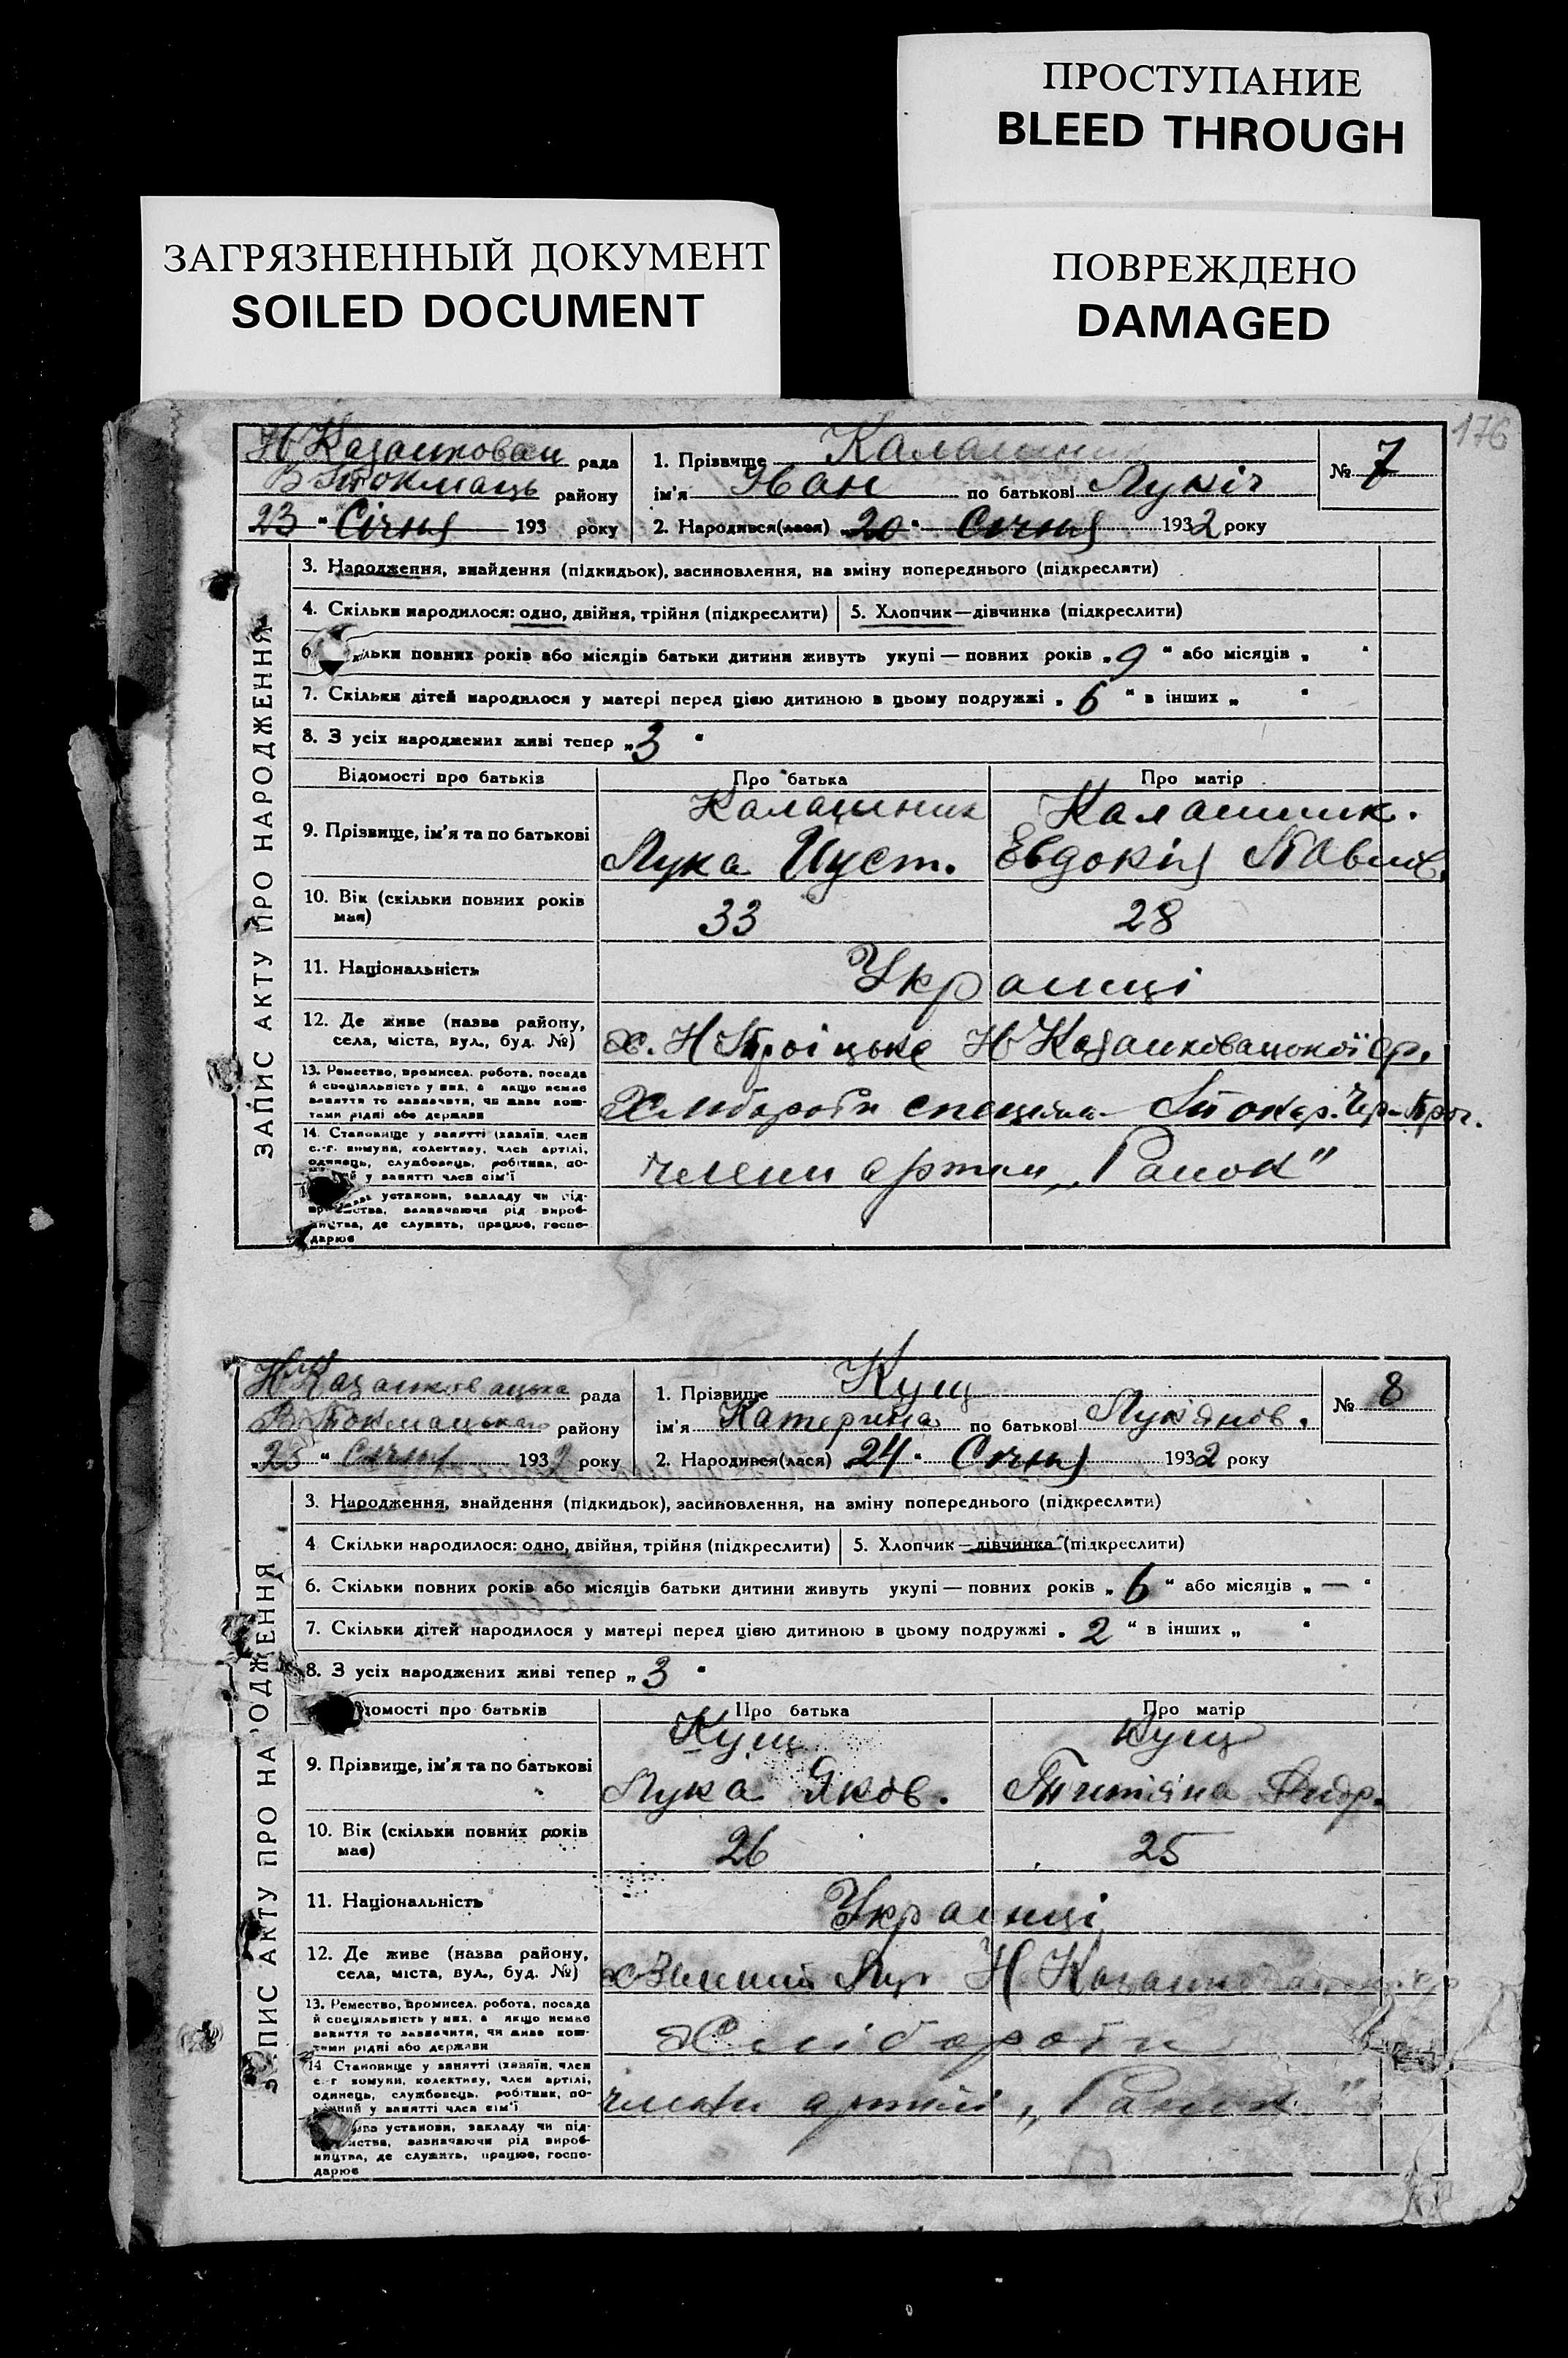 ПРОСТУПАНИЕ
BLEED THROUGH
ЗАГРЯЗНЕННЫЙ ДОКУМЕНТ
SOILED DOCUMENT
ПОВРЕЖДЕНО
DAMAGED
176
ЗАПИС АКТУ ПРО НАРОДЖЕННЯ
Н Казанковац рада
В Токмаць району
23 " Січня 193 року
1. Прізвище Калашник
ім'я Іван по батькові Лукіч
2. Народився(лася) „20" Січня 1932 року
№ 7
3. Народження, знайдення (підкидьок), засиновлення, на зміну попереднього (підкреслити)
4. Скільки народилося: одно, двійня, трійня (підкреслити) 5. Хлопчик—дівчинка (підкреслити)
6 ільки повних років або місяців батьки дитини живуть укупі — повних років „9" або місяців „ "
7. Скільки дітей народилося у матері перед цією дитиною в цьому подружжі „6" в інших „ "
8. З усіх народжених живі тепер „3"
Відомості про батьків Про батька Про матір
9. Прізвище, ім'я та по батькові
Калашник Калашник.
Лука Иуст. Евдокія Павлів.
10. Вік (скільки повних років має) 33 28
11. Національність Українці
12. Де живе (назва району, села, міста, вул., буд. №)
х. Н Троіцьке Н Казанковацької ср.
13. Ремество, промисел, робота, посада й спеціяльність у них, а якщо немає заняття то зазначити, чи живе коштами рідні або держави
Хлібороби
14. Становище у занятті (хазяїн, член с.-г. комуни, колективу, член артілі, одинець, службовець, робітник, по й у занятті член сім'ї
члени артіли „Ранок"
установи, закладу чи під ства, зазначаючи рід вироб ництва, де служить, працює, госпо-
дарює
ЗАПИС АКТУ ПРО НА ОДЖЕННЯ
Н Казанковацька рада
В Токмацького району
„23" Січня 1932 року
1. Прізвище Кущ
ім'я Катерина по батькові Лук'янов.
2. Народився(лася) „24" Січня 1932 року
№ 8
3. Народження, знайдення (підкидьок), засиновлення, на зміну попереднього (підкреслити)
4 Скільки народилося: одно, двійня, трійня (підкреслити) 5. Хлопчик—дівчинка (підкреслити)
6. Скільки повних років або місяців батьки дитини живуть укупі — повних років „6" або місяців „—"
7. Скільки дітей народилося у матері перед цією дитиною в цьому подружжі „2" в інших „ "
8. З усіх народжених живі тепер „3"
домості про батьків Про батька Про матір
9. Прізвище, ім'я та по батькові
Кущ Кущ
Лука Яков.
10. Вік (скільки повних років має) 26 25
11. Національність Українці
12. Де живе (назва району, села, міста, вул., буд. №)
х Зелений Луг Н Казанковацької
13. Ремество, промисел, робота, посада й спеціяльність у них, а якщо немає заняття то зазначити, чи живе коштами рідні або держави
Хлібороби
14 Становище у занятті (хазяїн, член с.-г комуни, колективу, член артілі, одинець, службовець, робітник, по ний у занятті член сім'ї
члени артілі „Ранок"
установи, закладу чи під- ства, зазначаючи рід вироб- ництва, де служить, працює, госпо-
дарює